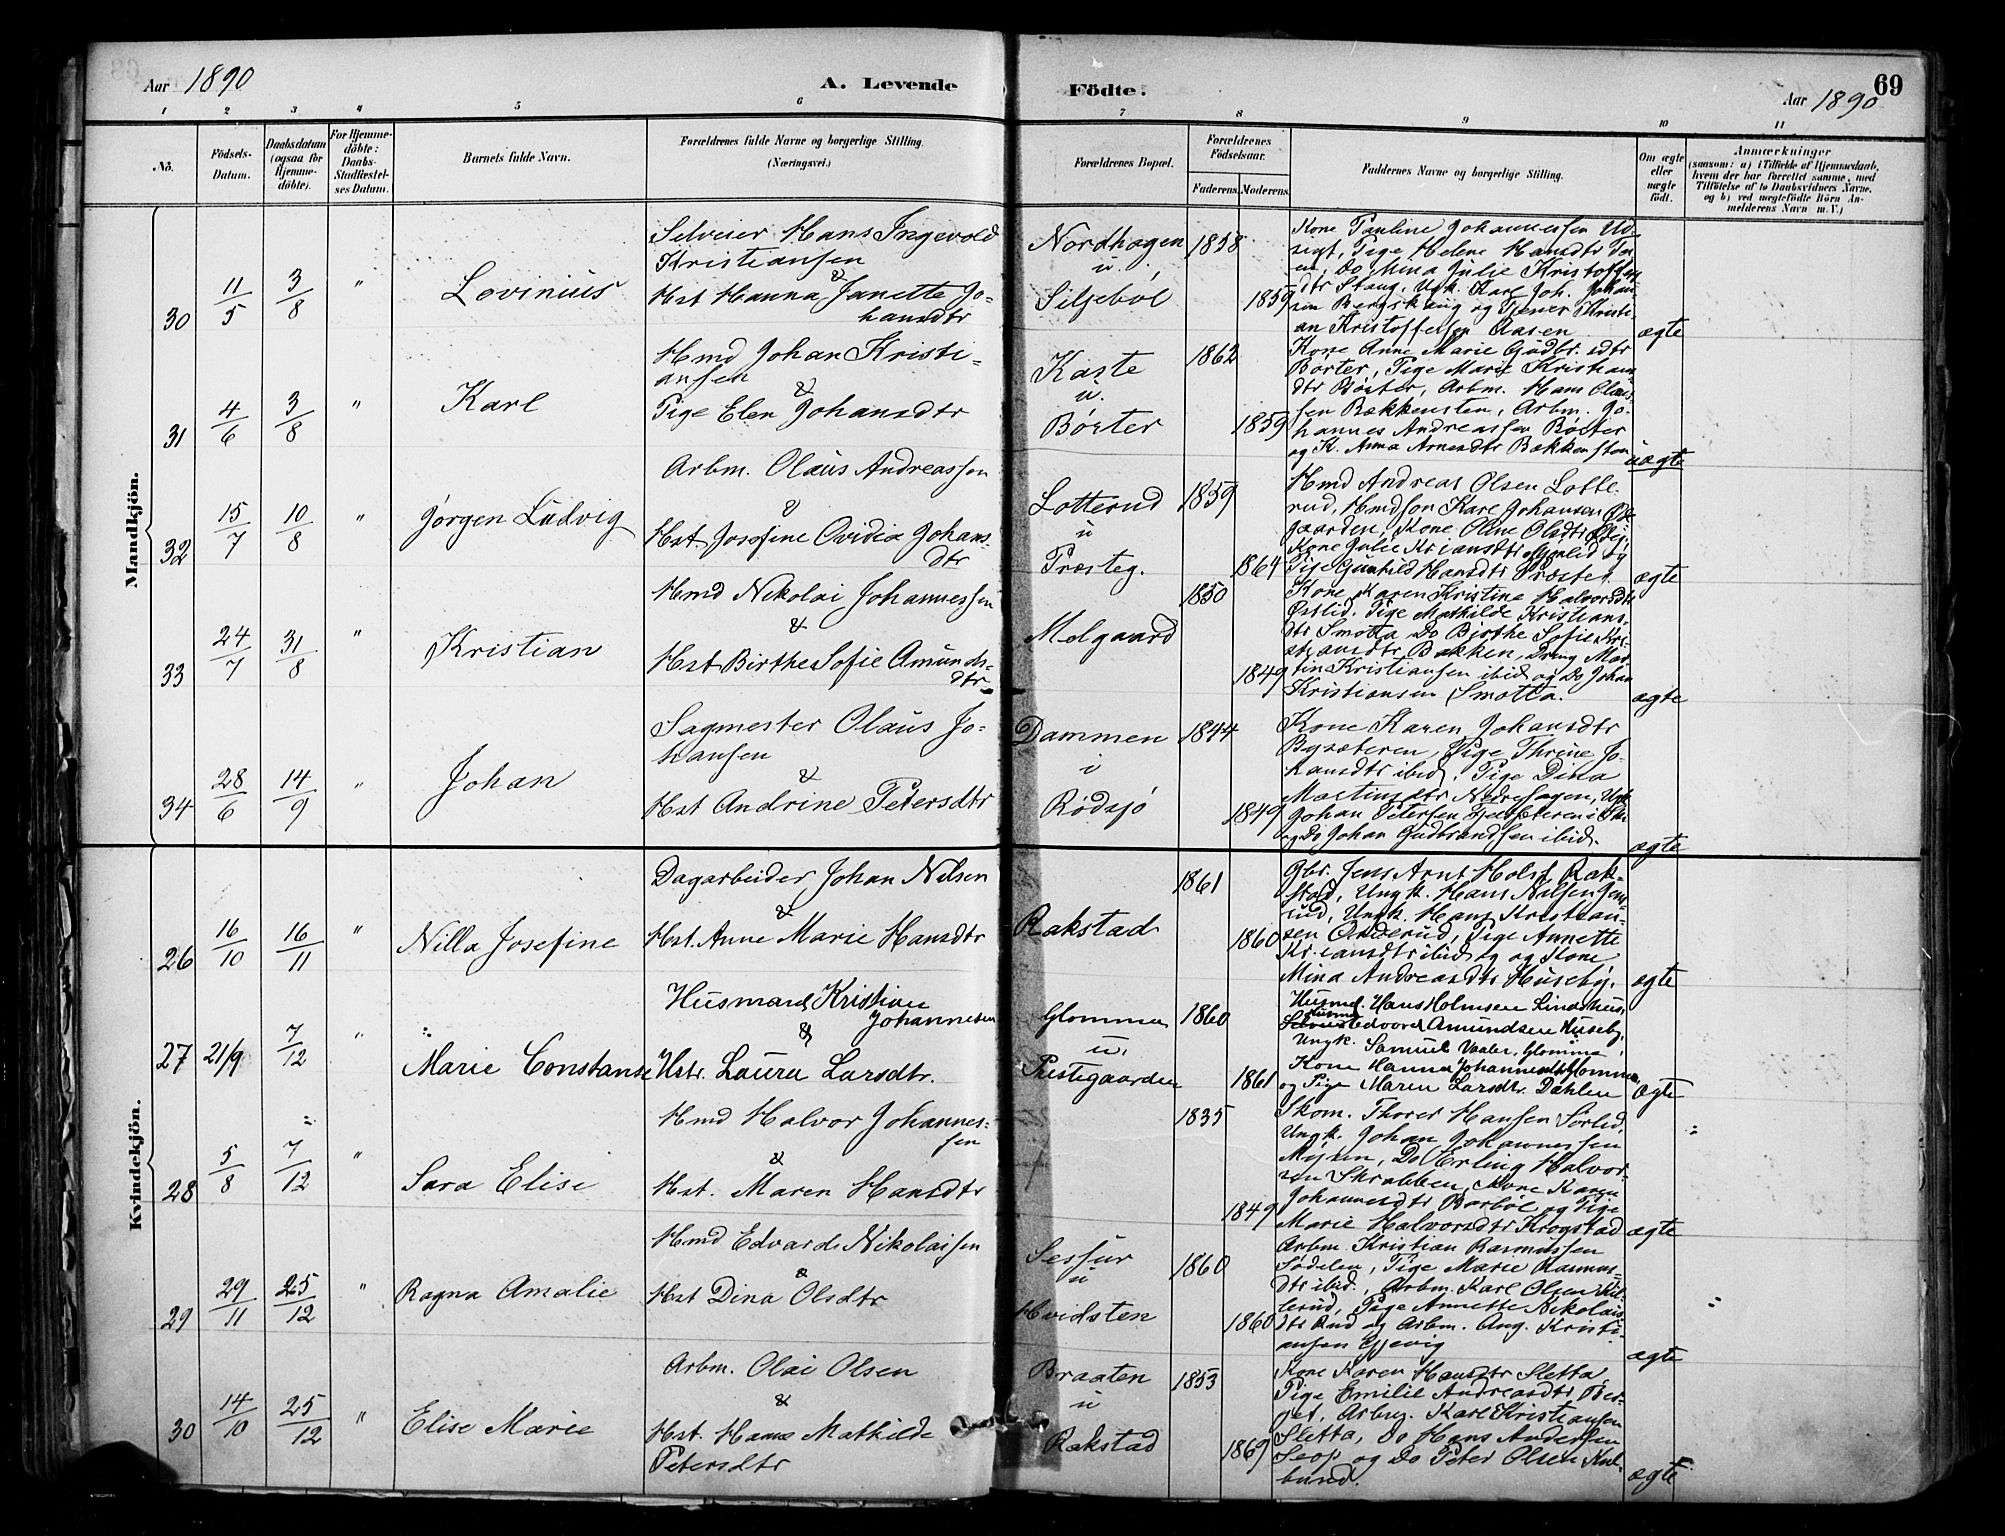 Aar 1890
A. Levende
Födte.
69
Aar 1890
1 2 3 4 5 6 7 8 9 10 11
No.
Födsels-
Datum.
Daabsdatum
(ogsaa for
Hjemme-
döbte).
For Hjemme-
döbte:
Daabs-
Stadfæstel-
ses Datum.
Barnets fulde Navn.
Forældrenes fulde Navne og borgerlige Stilling.
(Næringsvei.)
Forældrenes Bopæl.
Forældrenes
Födselsaar.
Faderens. Moderens.
Faddernes Navne og borgerlige Stilling.
Om ægte
eller
uægte
födt.
Anmærkninger
(saasom: a) i Tilfælde af Hjemmedaab,
hvem der har forrettet samme, med
Tilföielse af to Daabsvidners Navne,
og b) ved uægtefödte Börn An-
melderens Navn m. V.)
Mandkjön.
30 11/5 3/8 " Lovinius
Selveier Hans Ingevold
Kristiansen
&
Hst Hanna Janette Jo-
hansdtr
Nordhagen
u.
Siljeböl
1858
1859
Kone Pauline Johannessen Ud-
sigt, Pige Helene Hansdtr
Do Mina Julie Kristoffers
dtr Stang, Ugk. Karl Joh. Johan
sen Bergskaug og Tjener Kristi-
an Kristoffersen Aasen
ægte
31 4/6 3/8 " Karl
Hmd Johan Kristi-
ansen
&
Pige Elen Johansdtr
Kaste
u.
Börter
1862
1859
Kone Anne Marie Gudbr.sdtr
Börter, Pige Marie Kristians
dtr Börter, Arbm. Hans Claus-
sen Bækkensten, Arbm. Jo-
hannes Andreassen Börter
og K. Anna Arnesdtr Bækkensten
uægte
32 15/7 10/8 " Jørgen Ludvig
Arbm. Olaus Andreassen
&
Hst. Josefine Ovidia Johans-
dtr
Lotterud
u
Præsteg.
1859
1864
Hmd Andreas Olsen Lotte-
rud, Hmdsøn Karl Johansen Øde-
gaarden, Kone Oline Olsdtr Ødeg.,
Kone Julie Kr.iansdtr og
Pige Gunhild Hansdtr Præsteg.
ægte
33 24/7 31/8 " Kristian
Hmd Nikolai Johannessen
&
Hst Birthe Sofie Amunds-
dtr
Melgaard
1850
1849
Kone Karen Kristine Halvorsdtr
Østlid. Pige Mathilde Kristians-
dtr Smotta Do Birthe Sofie Kri-
stiansdtr Bakken, Dreng Mar-
tin Kristiansen ibid og Do Johan
Kristiansen Smotta.
ægte
34 28/6 14/9 " Johan
Sagmester Olaus Jo-
hansen
&
Hst Andrine Petersdtr
Dammen
i
Rødsjø
1844
1849
Kone Karen Johansdtr
Bysæteren, Pige Thrine Jo-
hansdtr ibid, Pige Dina
Martinsdtr Nedrehagen, Ugk
Johan Petersen
og Do Johan Gudbrandsen ibid.
ægte
Kvindekjön.
26 16/10 16/11 " Nilla Josefine
Dagarbeider Johan Nilsen
&
Hst. Anne Marie Hansdtr
Rakstad
1861
1860
Gbr. Jens Arnt Holst Rak-
stad, Ungk. Hans Nilsen Jen-
rud, Ungk. Hans Kristian-
sen Anderud, Pige Annette
Kr.iansdtr ibid og Kone
Mina Andreasdtr Huseby.
ægte
27 21/9 7/12 " Marie Constanse
Husmand Kristian
Johannesen
&
Hstr. Laura Larsdtr.
Glomma
u.
Prestegaarden
1860
1861
Husmd. Hans Holmsen Lindshus,
Edvard Amundsen Huseby,
Ungk. Samuel Vaaler, Glomma,
Kone Hanna Johannesdtr Glomma
og Pige Maren Larsdtr. Dahlen
ægte
28 5/8 7/12 " Sara Elise
Hmd Halvor Johannes-
sen
&
Hst. Maren Hansdtr
1835
1849
Skom. Thorer Hansen Sörlid,
Ungk. Johan Johannessen
Mysen, Do Erling Halvor-
sen Skrabben, Kone Karen
Johannesdtr Barböl og Pige
Marie Halvorsdtr Krogstad
ægte
29 29/11 25/12 " Ragna Amalie
Hmd Edvard Nikolaisen
&
Hst Dina Olsdtr
Sessur
u
Hvidsten
1860
1860
Arbm. Kristian Rasmussen
Sødelen, Pige Marie Rasmus-
dtr ibid., Arbm. Karl Olsen
Pige Annette Nikolais
dtr Rud og Arbm. Aug. Kristi-
ansen Gjevig
ægte
30 14/10 25/12 " Elise Marie
Arbm. Olai Olsen
&
Hst. Hanna Mathilde
Petersdtr
Braaten
u
Rakstad
1853
1869
Kone Karen Hansdtr Sletta,
Pige Emilie Andreasdtr Ber-
get, Arbm. Karl Kristiansen
Sletta, Do Hans Andersen
Seop og Do Peter Olsen Kul-
bund.
ægte